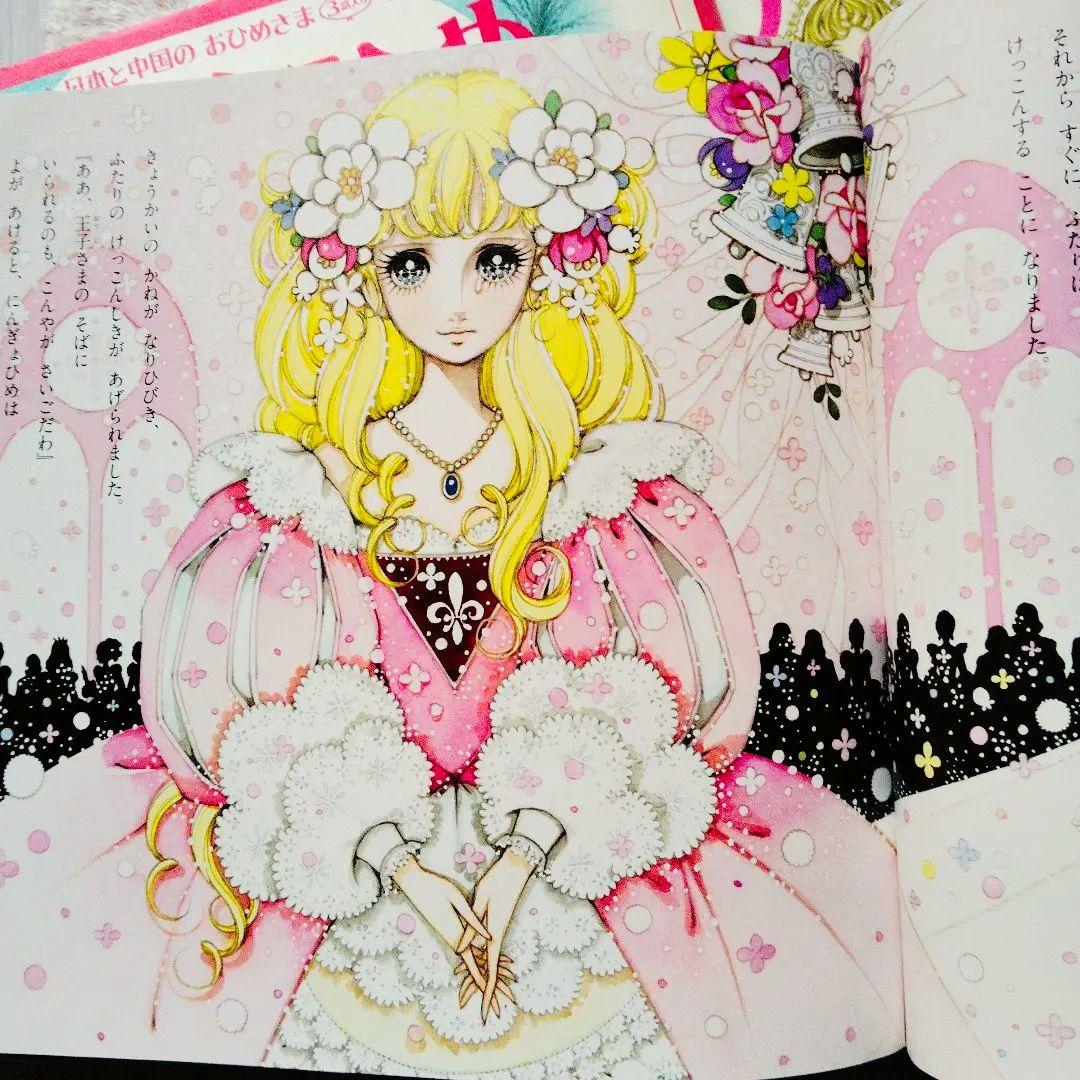 日本と中国の おひめさま
それから すぐに ふたりは
けっこんする ことに なりました。
きょうかいの かねが なりひびき、
ふたりの けっこんしきが あげられました。
『ああ、王子さまの そばに
いられるのも、こんやが さいごだわ』
よが あけると、にんぎょひめは